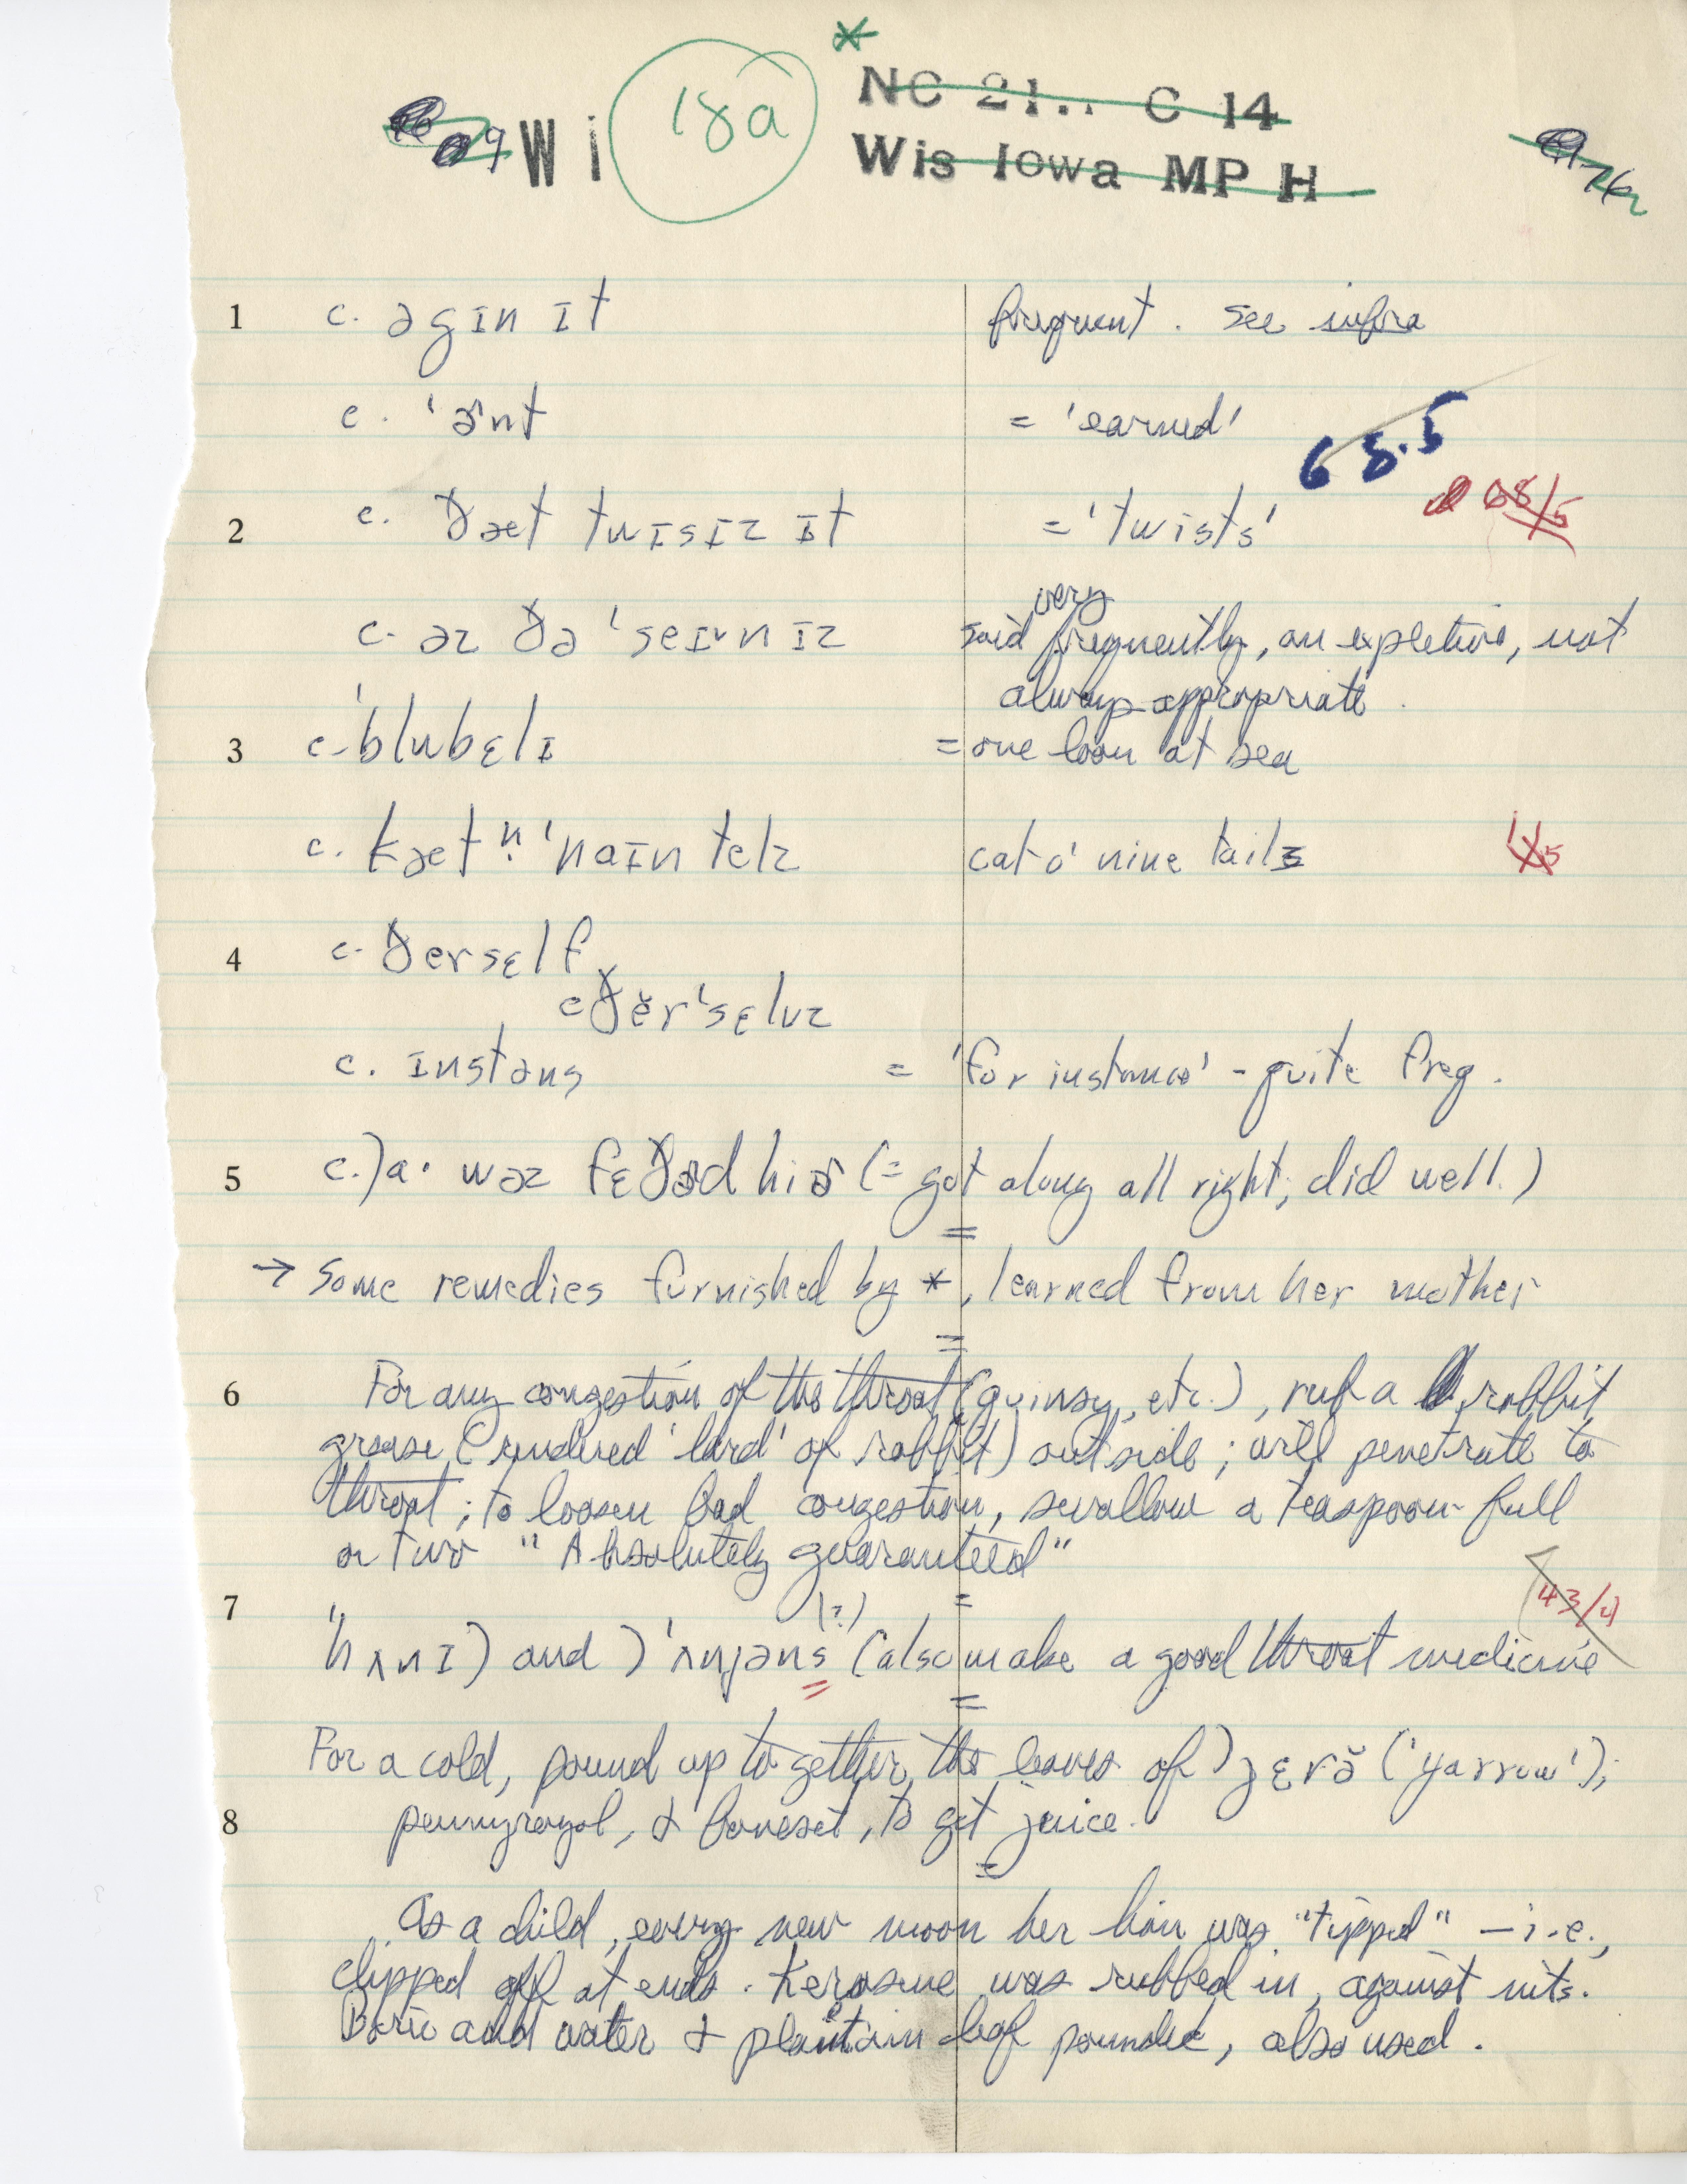 *
Wi 18a NC 21.. C 14
Wis Iowa MP H
1 c. əgɪn ɪt frequent. see infra
c. 'ɚnt = 'earned'
68.5
68/5
2 c. ðæt twɪsɪz ɪt = 'twists'
c. əz ðə 'seɪvnɪz said very frequently, an expletive, not
always appropriate.
3 c. 'blubɛlɪ = one loon at sea
c. kæt n̩ 'naɪn telz cat o' nine tails
4 c. ðerself
c ðĕr'sɛlvz
c. ɪnstəns = 'for instance' - quite freq.
5 c.) a· wəz fɛðɚd hiɚ (= got along all right; did well.)
=
→ Some remedies furnished by *, learned from her mother
=
6 For any congestion of the throat (quinsy, etc.), rub a rabbit
grease (rendered 'lard' of rabbit) outside; will penetrate to
throat; to loosen bad congestion, swallow a teaspoon-full
or two "Absolutely guaranteed"
43/4
7 =
(?)
'hʌnɪ) and ) 'ʌnjəns (also make a good throat medicine
=
For a cold, pound up together the leaves of ) jɛrə̆ ('yarrow');
8 pennyroyal, & boneset, to get juice.
=
As a child, every new moon her hair was "tipped" – i.e.,
clipped off at ends. Kerosene was rubbed in, against nits.
Boric acid water & plantain leaf , also used.